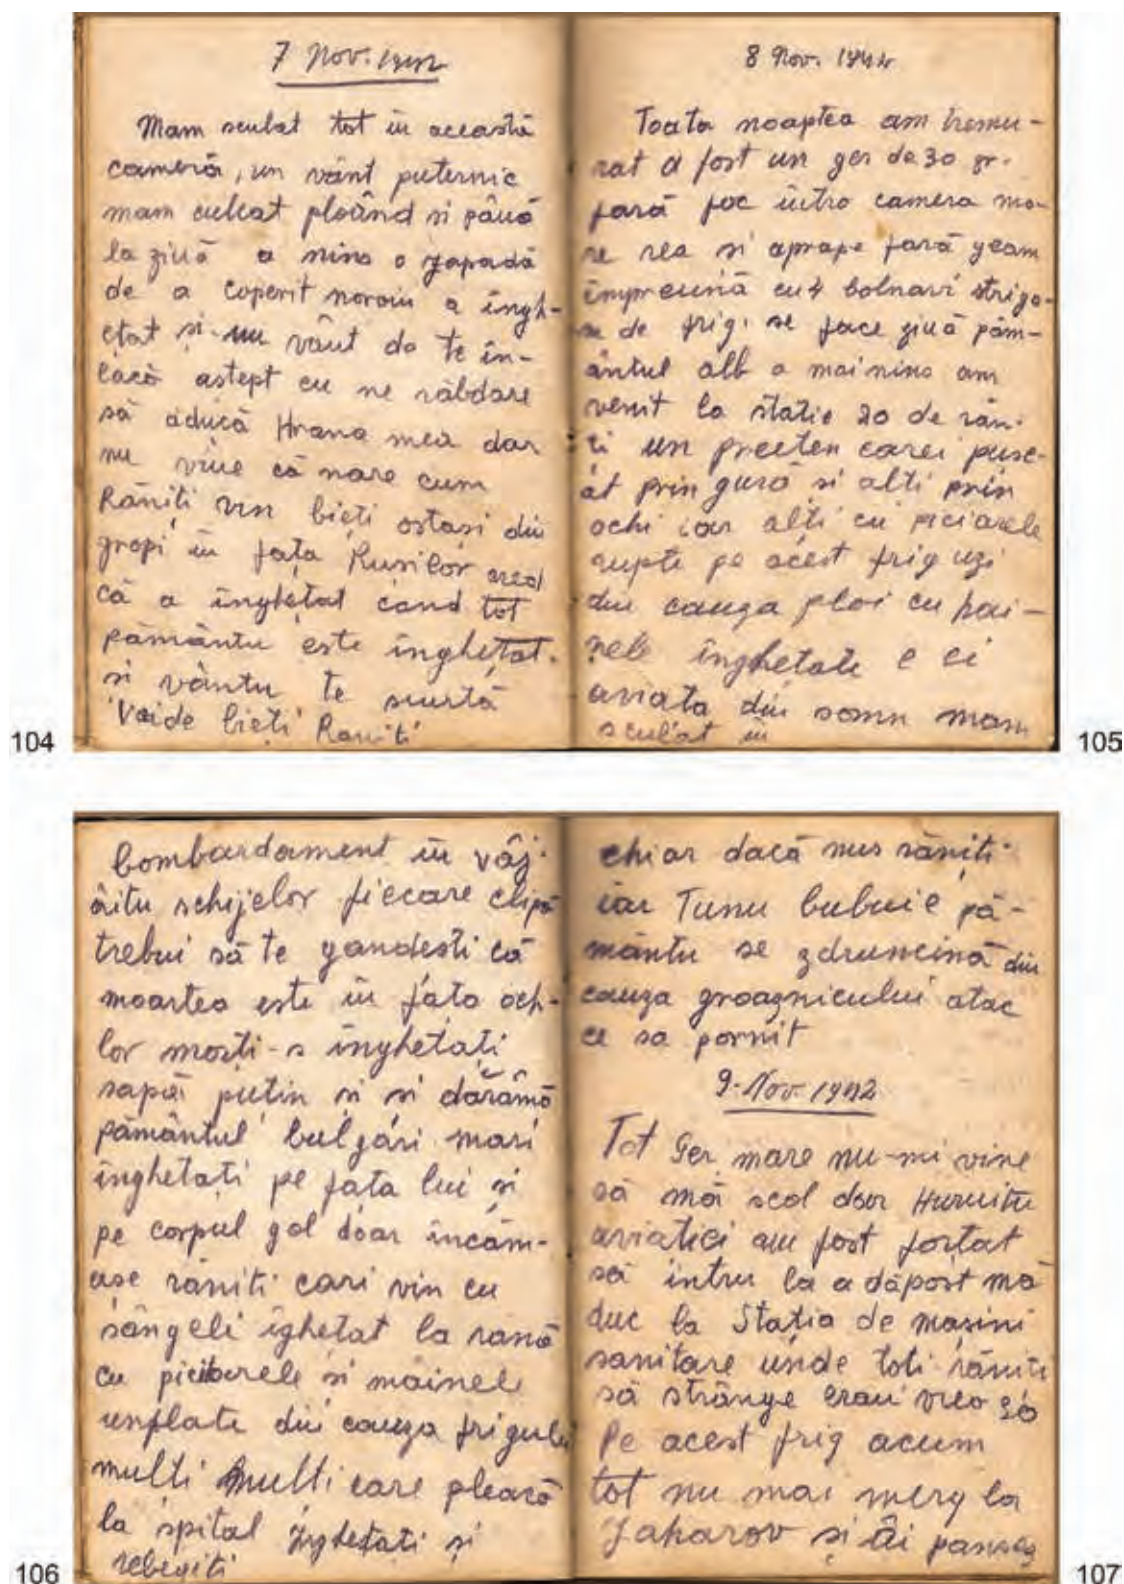 7 Nov. 1942
Mam sculat tot în această
cameră, un vânt puternic
mam culcat ploind si până
la ziuă a nins o zapadă
de a coperit noroiu a îngh-
ețat și un vânt de te în-
eacă astept cu ne răbdare
să aducă Hrana mea dar
nu vine că nare cum
Răniti vin bieți ostasi din
gropi în fața Rusilor cred
că a înghețat când tot
pământu este înghețat.
si vântu te
Vai de bieți Raniti
104
8 Nov. 1942
Toata noaptea am tremu-
rat a fost un ger de 30 gr.
fară foc într o camera ma-
re rea si aprape fară geam
împreună cu 4 bolnavi striga-
se de frig. se face ziuă păm-
ântul alb a mai nins am
venit la statie 20 de răni-
ti un preeten carei pusc-
at prin gură si alti prin
ochi iar alți cu picioarele
rupte pe acest frig uzi
din cauza ploi cu hai-
nele înghetate e ei
aviata din somn mam
sculat in
105
bombardament în vâj-
âitu schijelor fiecare clipă
trebui să te gandesti că
moartea este în fața och-
lor morti-s înghetați
sapăi puțin si si dărâmă
pământul bulgări mari
înghetați pe fața lui si
pe corpul gol doar încăm-
așe răniti cari vin cu
sângeli ighetat la rană
cu picioarele si mainele
unflate din cauza frigului
multi multi care pleacă
la spital înghețati și
rebegiti
106
chiar dacă nus răniți.
iar Tunu bubuie pă-
măntu se zdruncină din
cauza groaznicului atac
ce sa pornit
9. Nov. 1942
Tot Ger mare nu-mi vine
să mă scol doar Huruitu
aviatiei am fost forțat
să intru la a dăpost mă
duc la Stația de mașini
sanitare unde toti răniti
să strânge erau vreo 30
Pe acest frig acum
tot nu mai merg la
Zaharov și âi pansez
107